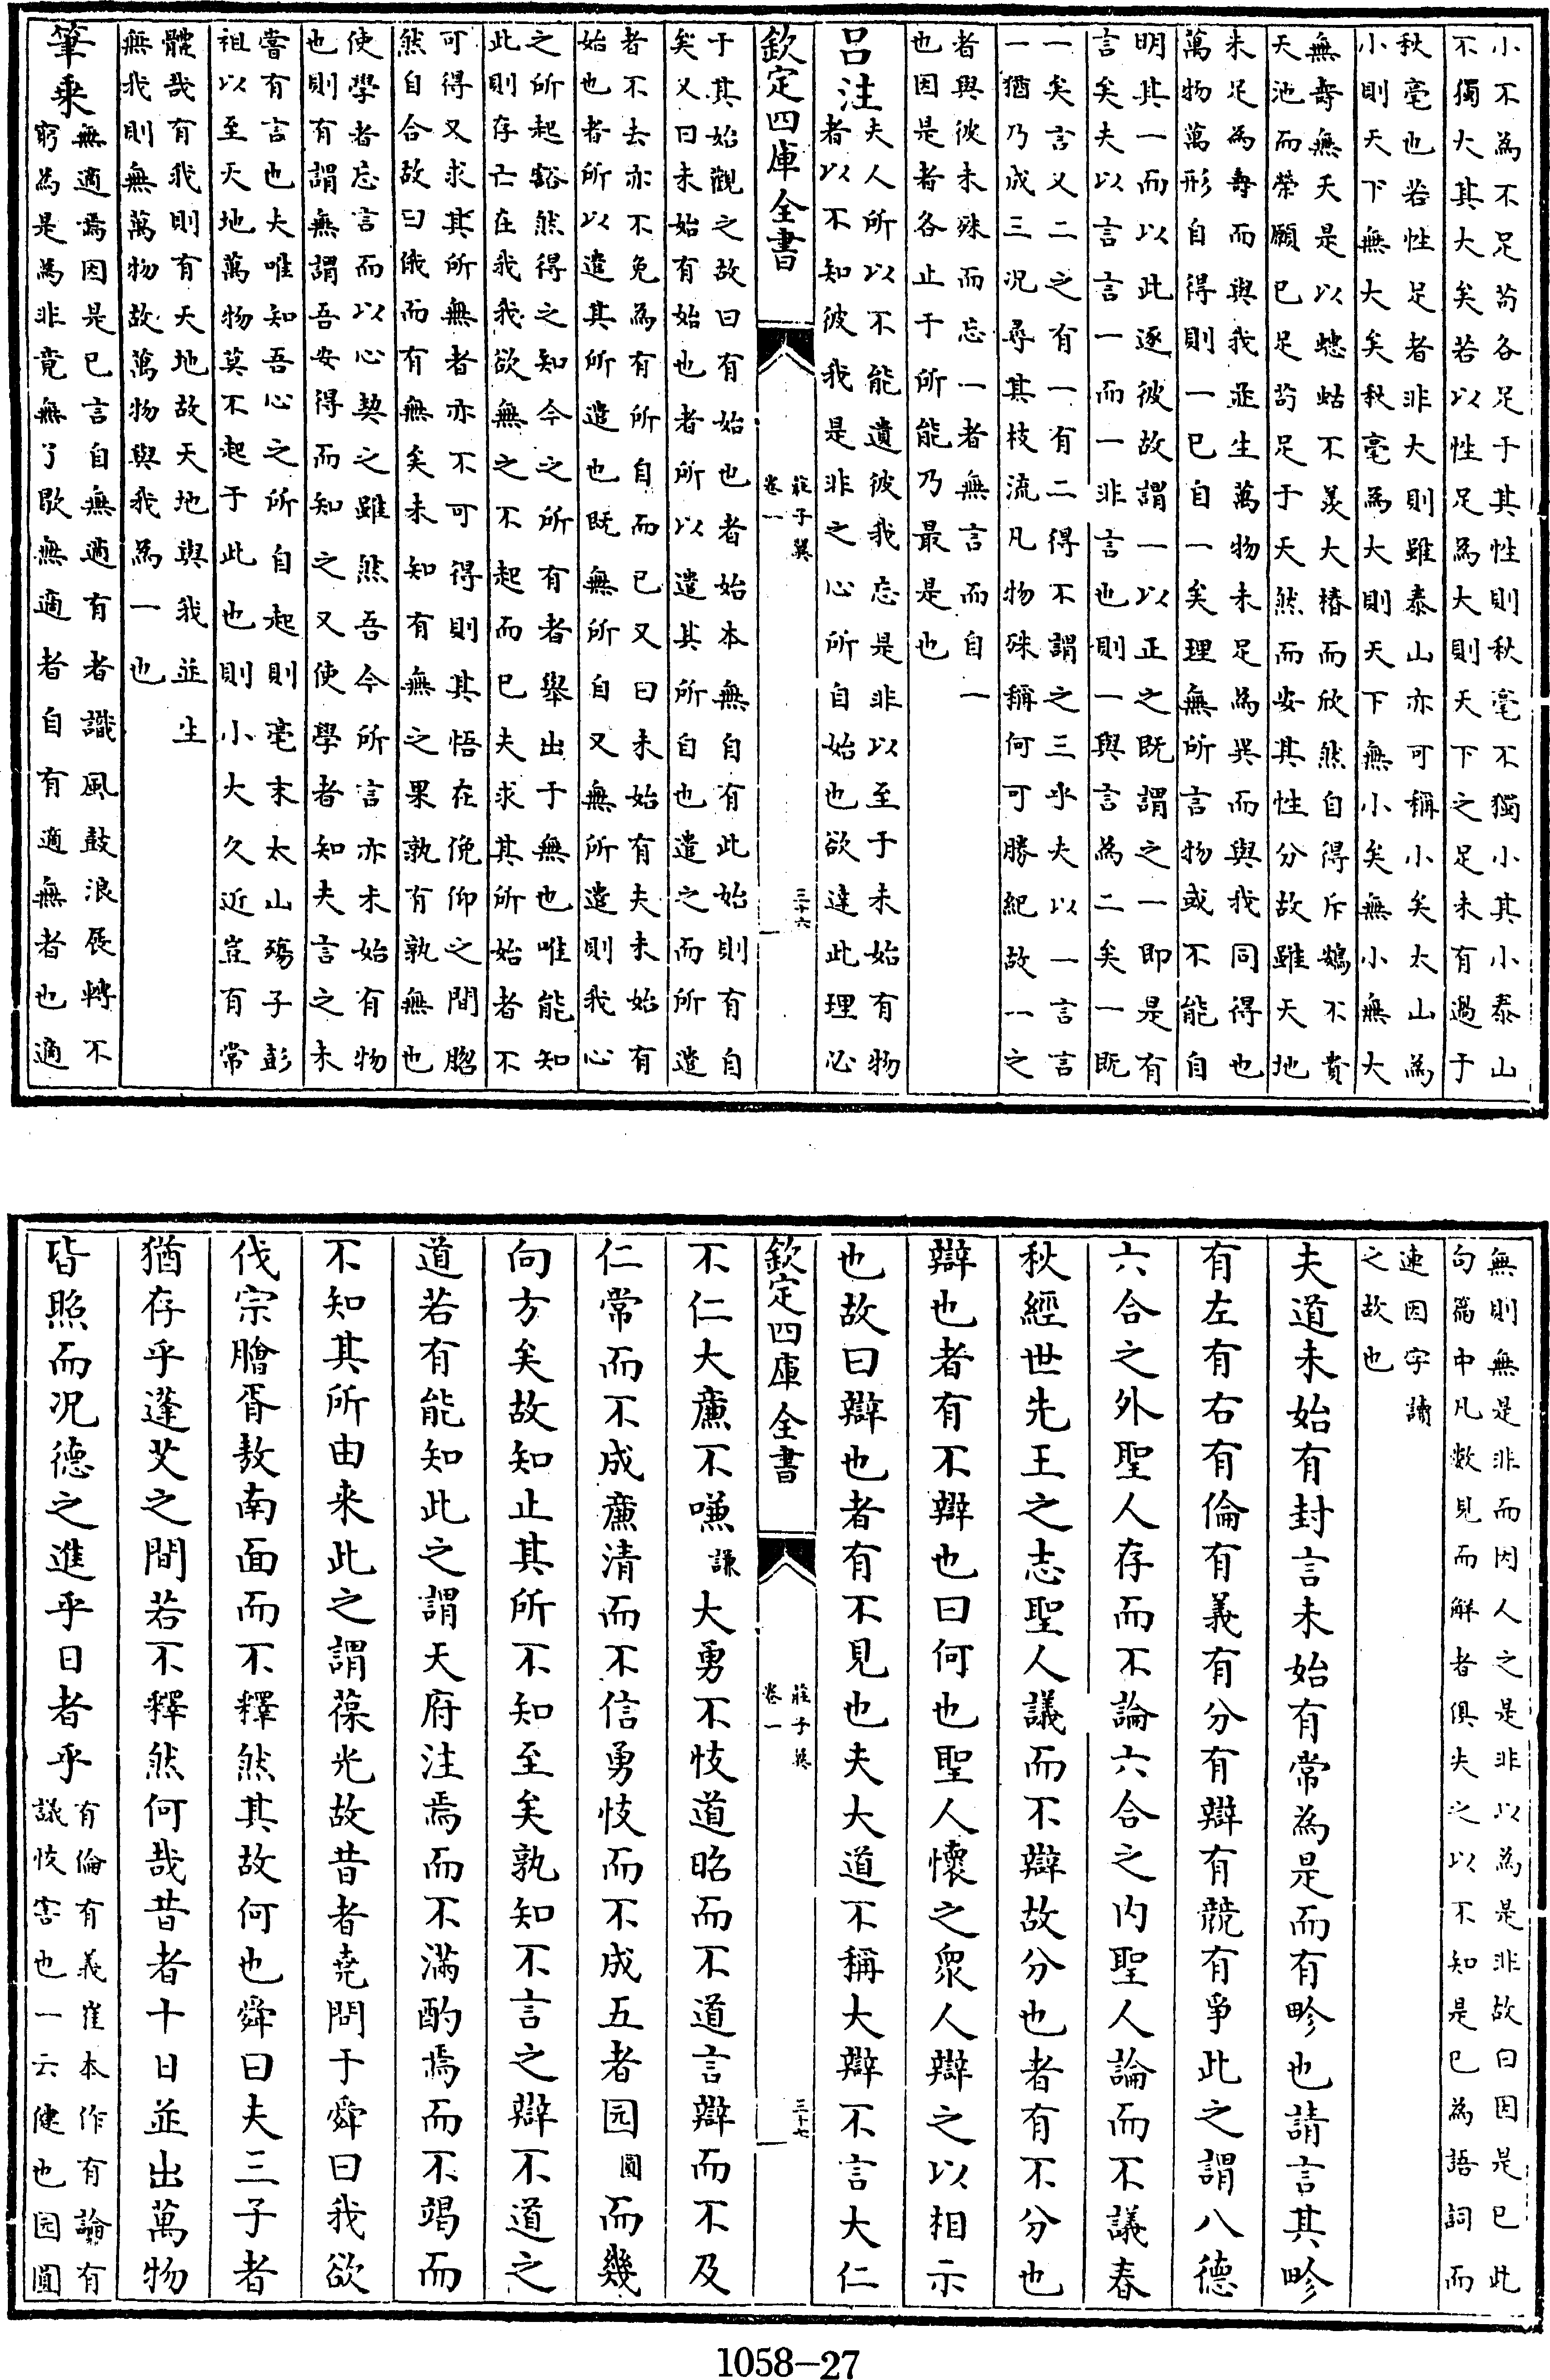 小不為不足苟各足于其性則秋毫不獨小其小泰山
不獨大其大矣若以性足為大則天下之足未有過于
秋毫也若性足者非大則雖泰山亦可稱小矣太山為
小則天下無大矣秋毫為大則天下無小矣無小無大
無壽無夭是以蟪蛄不羨大椿而欣然自得斥鷃不貴
天池而榮願已足苟足于天然而安其性分故雖天地
未足為壽而與我並生萬物未足為異而與我同得也
萬物萬形自得則一已自一矣理無所言物或不能自
明其一而以此逐彼故謂一以正之既謂之一即是有
言矣夫以言言一而一非言也則一與言為二矣一既
一矣言又二之有一有二得不謂之三乎夫以一言言
一猶乃成三况尋其枝流凡物殊稱何可勝紀故一之
者與彼未殊而忘一者無言而自一
也因是者各止于所能乃最是也
呂注
夫人所以不能遺彼我忘是非以至于未始有物
者以不知彼我是非之心所自始也欲達此理必
欽定四庫全書
莊子翼
卷一
三十六
于其始觀之故曰有始也者始本無自有此始則有自
矣又曰未始有始也者所以遣其所自也遣之而所遣
者不去亦不免為有所自而已又曰未始有夫未始有
始也者所以遣其所遣也既無所自又無所遣則我心
之所起豁然得之知今之所有者舉出于無也唯能知
此則存亡在我我欲無之不起而已夫求其所始者不
可得又求其所無者亦不可得則其悟在俛仰之間脗
然自合故曰俄而有無矣未知有無之果孰有孰無也
使學者忘言而以心契之雖然吾今所言亦未始有物
也則有謂無謂吾安得而知之又使學者知夫言之未
嘗有言也夫唯知吾心之所自起則毫末太山殤子彭
祖以至天地萬物莫不起于此也則小大久近豈有常
體哉有我則有天地故天地與我並生
無我則無萬物故萬物與我為一也
筆乗
無適焉因是已言自無適有者識風鼓浪展轉不
窮為是為非竟無了歇無適者自有適無者也適
無則無是非而因人之是非以為是非故曰因是已此
句篇中凡數見而解者俱失之以不知是已為語詞而
連因字讀
之故也
夫道未始有封言未始有常為是而有畛也請言其畛
有左有右有倫有義有分有辯有競有爭此之謂八德
六合之外聖人存而不論六合之内聖人論而不議春
秋經世先王之志聖人議而不辯故分也者有不分也
辯也者有不辯也曰何也聖人懷之衆人辯之以相示
也故曰辯也者有不見也夫大道不稱大辯不言大仁
欽定四庫全書
莊子翼
卷一
三十七
不仁大廉不嗛謙大勇不忮道昭而不道言辯而不及
仁常而不成廉清而不信勇忮而不成五者园圓而幾
向方矣故知止其所不知至矣孰知不言之辯不道之
道若有能知此之謂天府注焉而不滿酌焉而不竭而
不知其所由来此之謂葆光故昔者堯問于舜曰我欲
伐宗膾胥敖南面而不釋然其故何也舜曰夫三子者
猶存乎蓬艾之間若不釋然何哉昔者十日並出萬物
皆照而况德之進乎日者乎
有倫有義崔本作有論有
議忮害也一云健也园圓
1058-27